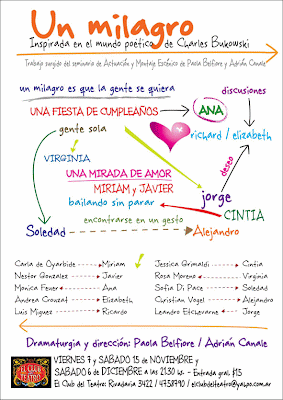 Un milagro
Inspirada en el mundo poético de Charles Bukowski
Trabajo surgido del seminario de Actuación y Montaje Escénico de Paola Belfiore y Adrián Canale
un milagro es que la gente se quiera
discusiones
UNA FIESTA DE CUMPLEAÑOS
ANA
gente sola
richard / elizabeth
VIRGINIA
deseo
UNA MIRADA DE AMOR
MIRIAM y JAVIER
jorge
bailando sin parar
CINTIA
encontrarse en un gesto
Soledad
Alejandro
Carla de Oyarbide Miriam
Nestor Gonzalez Javier
Monica Feuer Ana
Andrea Crouzat Elizabeth
Luis Miguez Ricardo
Jessica Grimaldi Cintia
Rosa Moreno Virginia
Sofia Di Pace Soledad
Christian Vogel Alejandro
Leandro Etchevarne Jorge
Dramaturgia y dirección: Paola Belfiore / Adrián Canale
EL CLUB DEL TEATRO
VIERNES 7 y SABADO 15 de NOVIEMBRE y
SABADO 6 de DICIEMBRE a las 21:30 hs. - Entrada gral. $15
El Club del Teatro: Rivadavia 3422 / 4758790 / elclubdelteatro@yahoo.com.ar